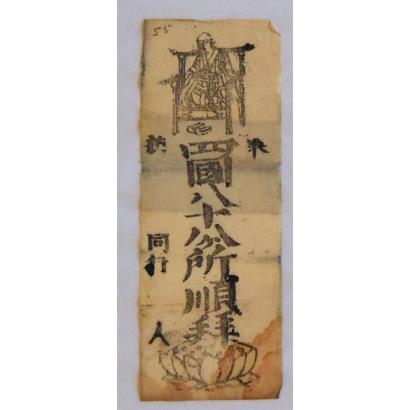 55
奉
四國八十八ヶ所順拜
納
同行
人